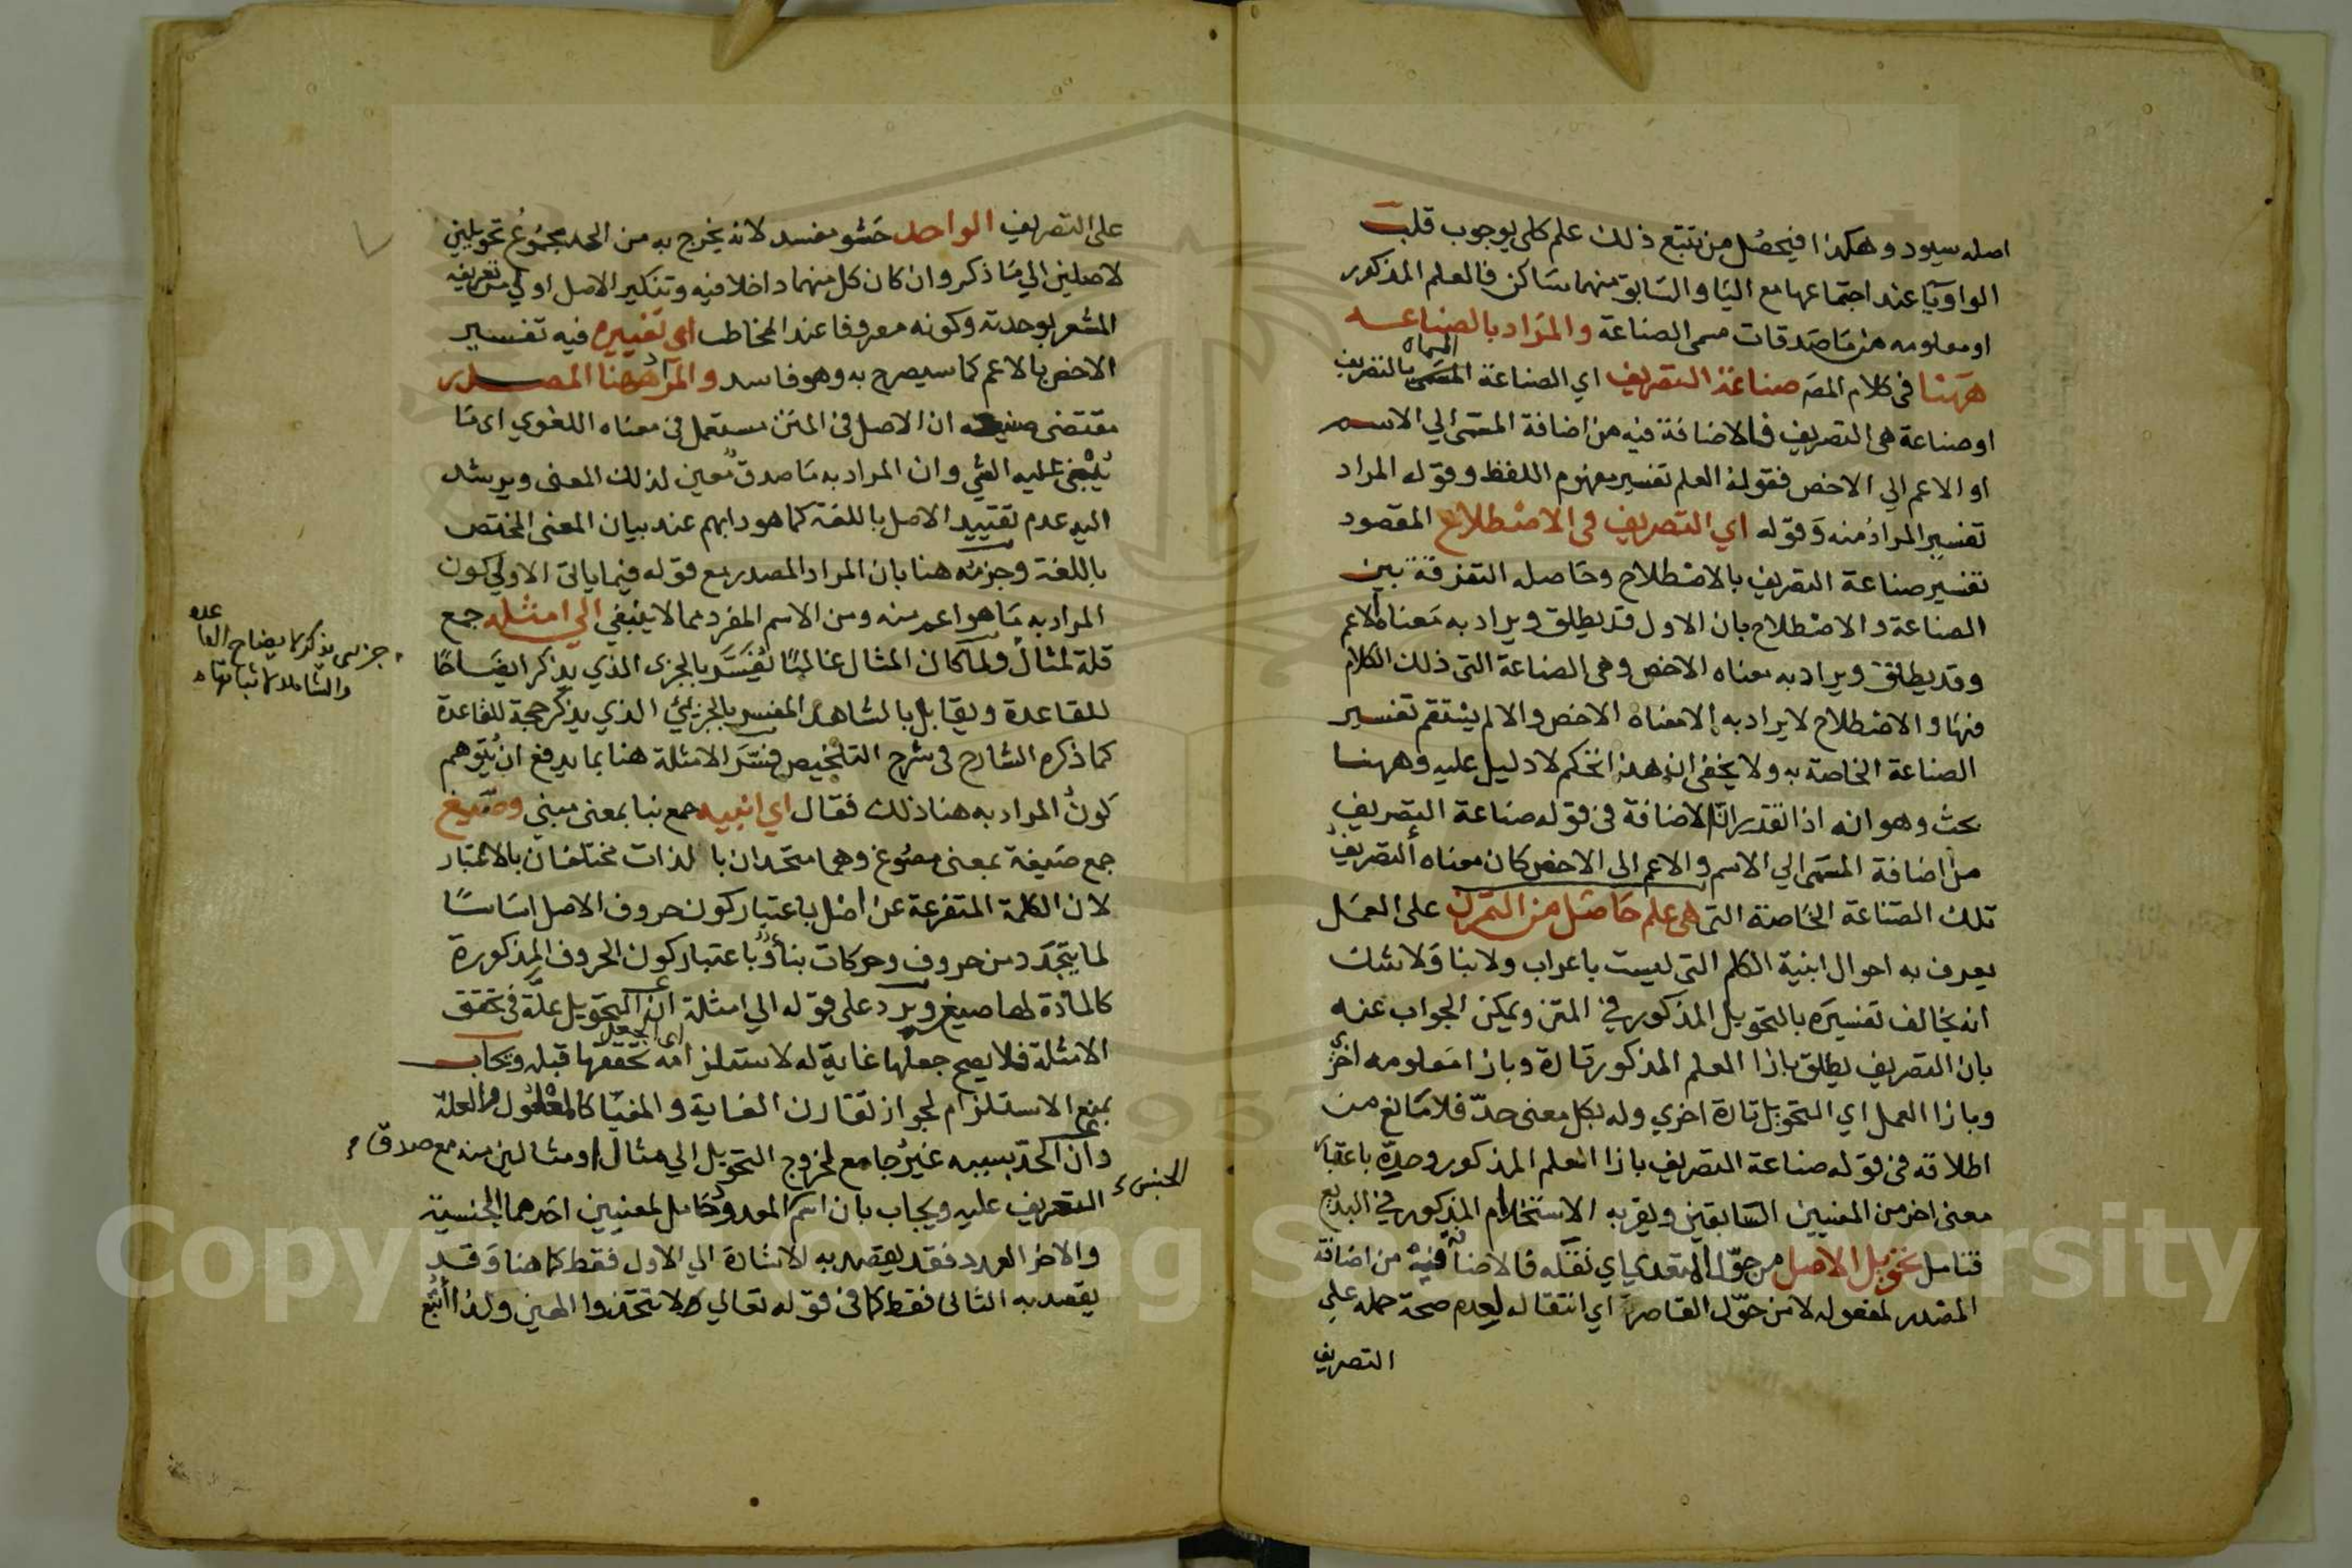 اصله سيود وهكذا فيحصل من تتبع ذلك علم كلى بوجوب قلب
الواو يا عند اجتماعها مع اليا والسابق منهما ساكن فالعلم المذكور
او معلومه من ماصدقات مسمى الصناعة والمراد بالصناعه
ههنا فى كلام المصه صناعة التصريف اي الصناعة المسماه بالتصريف
او صناعة هى التصريف فالاضافة فيه من اضافة المسمى الي الاسم
او الاعم الي الاخص فقوله العلم تفسير مفهوم اللفظ وقوله المراد
تفسير المراد منه وقوله اي التصريف فى الاصطلاح المقصود
تفسير صناعة التصريف بالاصطلاح وحاصله التفرقة بين
الصناعة والاصطلاح بان الاول قد يطلق ويراد به معناه الاعم
وقد يطلق ويراد به معناه الاخص وهى الصناعة التى ذلك الكلام
فيها والاصطلاح لا يراد به الا معناه الاخص والا لم يستقم تفسير
الصناعة الخاصة به ولا يخفى ان هذا تحكم لا دليل عليه وههنا
بحث وهو انه اذا تقدر ان الاضافة فى قوله صناعة التصريف
من اضافة المسمى الي الاسم والاعم الى الاخص كان معناه التصريف
تلك الصناعة الخاصة التى هى علم حاصل من التمرن على العمل
يعرف به احوال ابنية الكلم التى ليست باعراب ولا بنا ولا شك
انه يخالف تفسيره بالتحويل المذكور في المتن ويمكن الجواب عنه
بان التصريف يطلق بازا العلم المذكور تارة وبازا معلومه اخرى
وبازا العمل اي التحويل تارة اخري وله بكل معنى حد فلا مانع من
اطلاقه فى قوله صناعة التصريف بازا العلم المذكور وحده باعتبار
معنى اخر من المعنيين السابقين ويقربه الاستخدام المذكور في البديع
فتامل تحويل الاصل من حوّل المتعدي اي نقله فالاضافة فيه من اضافة
المصدر لمفعوله لا من حوّل القاصر اي انتقاله لعدم صحة حمله علي
التصريف
على التصريف الواحد حشو مفسد لانه يخرج به من الحد مجموع تحويلين
لاصلين الي ما ذكر وان كان كل منهما داخلا فيه وتنكير الاصل اولي من تعريفه
المشعر بوحدته وكونه معروفا عند المخاطب اى تغييره فيه تفسير
الاخص بالاعم كما سيصرح به وهو فاسد والمراد ههنا المصدر
مقتضى صنيعه ان الاصل فى المتن مستعمل فى معناه اللغوي اى ما
يبنى عليه الشي وان المراد به ماصدق معين لذلك المعنى ويرشد
اليه عدم تقييد الاصل باللغة كما هو دابهم عند بيان المعنى المختص
باللغة وجزمه هنا بان المراد المصدر مع قوله فيما ياتى الاولي كون
المراد به ما هو اعم منه ومن الاسم المفرد مما لا ينبغي الي امثله جمع
قلة لمثال ولما كان المثال غالبا يفسر بالجزى الذي يذكر ايضاحا
للقاعدة ويقابل بالشاهد المفسر بالجزيئ الذي يذكر حجة للقاعدة
كما ذكره الشارح فى شرح التلخيص فسر الامثلة هنا بما يدفع ان يتوهم
كون المراد به هنا ذلك فقال اي ابنيه جمع بنا بمعنى مبني وصيغ
جمع صيغة بمعنى مصوغ وهما متحدان بالذات مختلفان بالاعتبار
لان الكلمة المتفرعة عن اصل باعتبار كون حروف الاصل اساسا
لما يتجدد من حروف وحركات بنا وباعتبار كون الحروف المذكورة
كالمادة لها صيغ ويرد على قوله الي امثلة ان التحويل علة فى تحقق
الامثلة فلا يصح جعلها غاية له لاستلزامه تحققها قبله ويجاب
اى الجعل
بمنع الاستلزام لجواز تقارن الغاية والمغيا كالمعلول والعلة
وان الحد بسببه غير جامع لخروج التحويل الي مثال او مثالين منه مع صدق
التعريف عليه ويجاب بان اسم المعدود حامل لمعنيين احدهما الجنسية
والاخر العدد فقد يقصد به الاشارة الي الاول فقط كما هنا وقد
يقصد به الثانى فقط كما فى قوله تعالي لا تتخذوا الهين ولذا اتبع
جزيى يذكر لايضاح القاعده
والشاهد لاثباتها
الجنس
Copyright © King Saud University
957